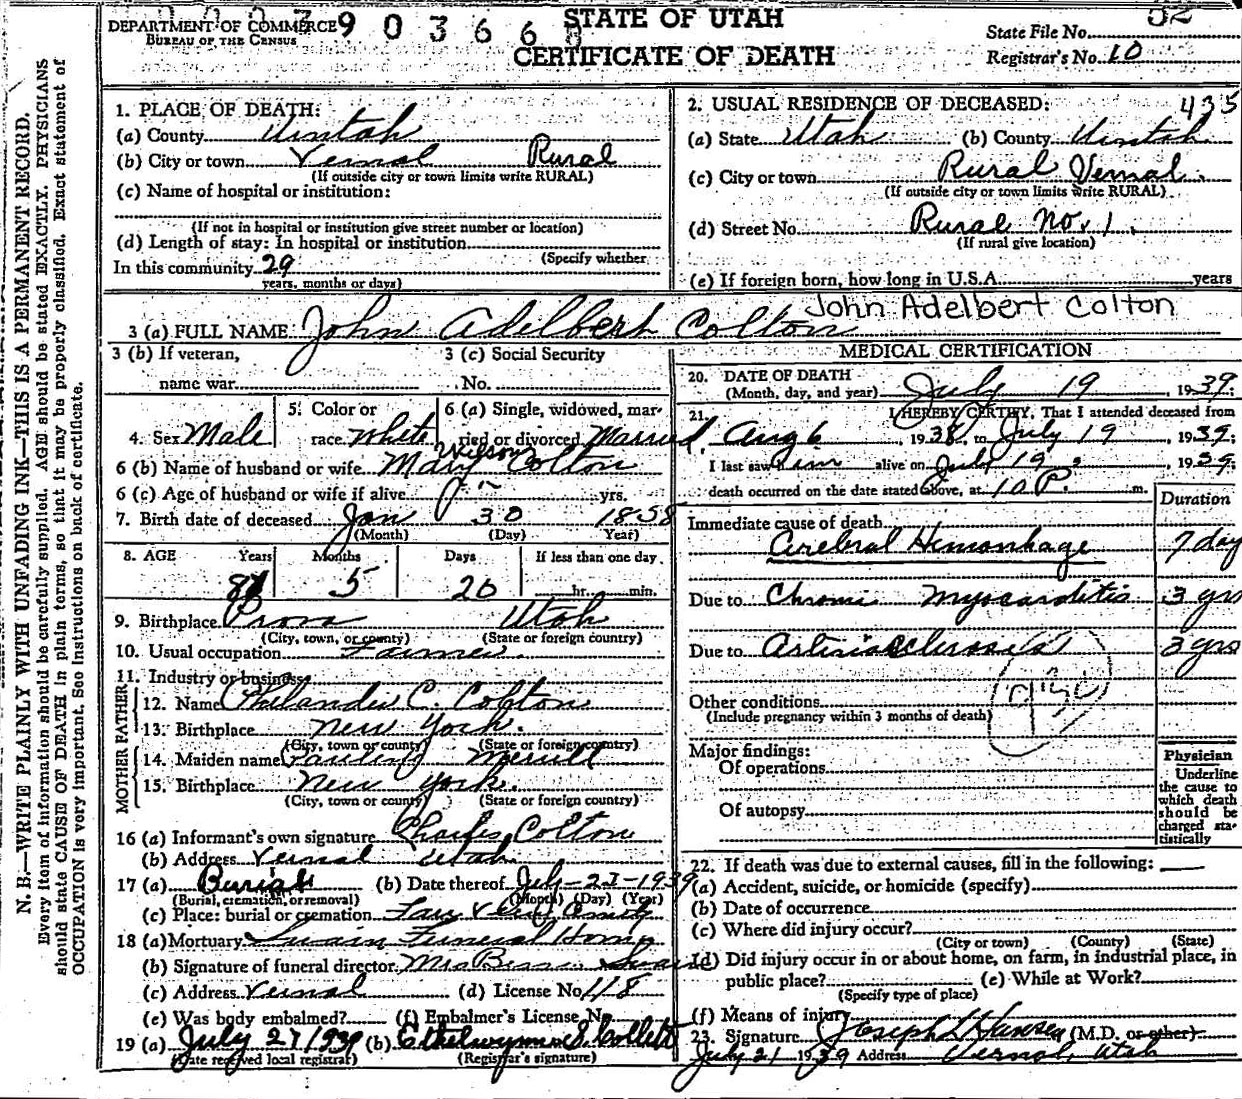 DEPARTMENT OF COMMERCE
BUREAU OF THE CENSUS
90366
STATE OF UTAH
CERTIFICATE OF DEATH
State File No. 52
Registrar's No. 10
N. B.—WRITE PLAINLY WITH UNFADING INK—THIS IS A PERMANENT RECORD.
Every item of information should be carefully supplied. AGE should be stated EXACTLY. PHYSICIANS
should state CAUSE OF DEATH in plain terms, so that it may be properly classified. Exact statement of
OCCUPATION is very important. See Instructions on back of certificate.
1. PLACE OF DEATH:
(a) County Uintah
(b) City or town Vernal Rural
(If outside city or town limits write RURAL)
(c) Name of hospital or institution:
(If not in hospital or institution give street number or location)
(d) Length of stay: In hospital or institution
(Specify whether
In this community 29
years, months or days)
2. USUAL RESIDENCE OF DECEASED: 435
(a) State Utah (b) County Uintah
(c) City or town Rural Vernal
(If outside city or town limits write RURAL)
(d) Street No. Rural No. 1.
(If rural give location)
(e) If foreign born, how long in U.S.A. years
3 (a) FULL NAME John Adelbert Colton John Adelbert Colton
3 (b) If veteran,
name war
3 (c) Social Security
No.
4. Sex Male
5. Color or
race White
6 (a) Single, widowed, mar-
ried or divorced Married
6 (b) Name of husband or wife Mary Wilson Colton
6 (c) Age of husband or wife if alive yrs.
7. Birth date of deceased Jan 30 1858
(Month) (Day) Year)
8. AGE Years Months Days If less than one day
81 5 20 hr. min.
9. Birthplace Provo Utah
(City, town, or county) (State or foreign country)
10. Usual occupation Farmer.
11. Industry or business
FATHER
12. Name Philander C. Colton
13. Birthplace New York.
(City, town or county) (State or foreign country)
MOTHER
14. Maiden name Merrill
15. Birthplace New York.
(City, town or county) (State or foreign country)
16 (a) Informant's own signature Charles Colton
(b) Address Vernal Utah
17 (a) Burial (b) Date thereof July-21-1939
(Burial, cremation, or removal) (Month) (Day) (Year)
(c) Place: burial or cremation
18 (a) Mortuary Swain Funeral Home
(b) Signature of funeral director Mrs Swain
(c) Address Vernal (d) License No. 118
(e) Was body embalmed? (f) Embalmer's License No.
19 (a) July 27 1939 (b) Ethelwynne S. Collett
(Date received local registrar) (Registrar's signature)
MEDICAL CERTIFICATION
20. DATE OF DEATH
(Month, day, and year) July 19, 1939.
21. I HEREBY CERTIFY, That I attended deceased from
Aug 6, 1938, to July 19, 1939;
I last saw him alive on July 19, 1939;
death occurred on the date stated above, at 10 P. m.
Duration
Immediate cause of death
Cerebral Hemorrhage 7 day
Due to Chronic Myocarditis 3 yrs
Due to Arteriosclerosis 3 yrs
Other conditions
(Include pregnancy within 3 months of death)
Major findings:
Of operations
Of autopsy
Physician
Underline
the cause to
which death
should be
charged sta-
tistically
22. If death was due to external causes, fill in the following: —
(a) Accident, suicide, or homicide (specify)
(b) Date of occurrence
(c) Where did injury occur?
(City or town) (County) (State)
(d) Did injury occur in or about home, on farm, in industrial place, in
public place? (e) While at Work?
(Specify type of place)
(f) Means of injury
23. Signature Joseph L Hansen (M.D. or other)
July 21 1939 Address Vernal, Utah